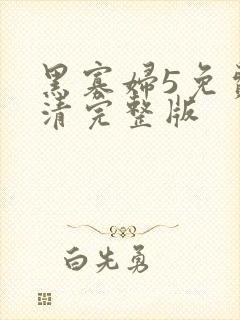 黑寡婦5免費
清完整版
白先勇